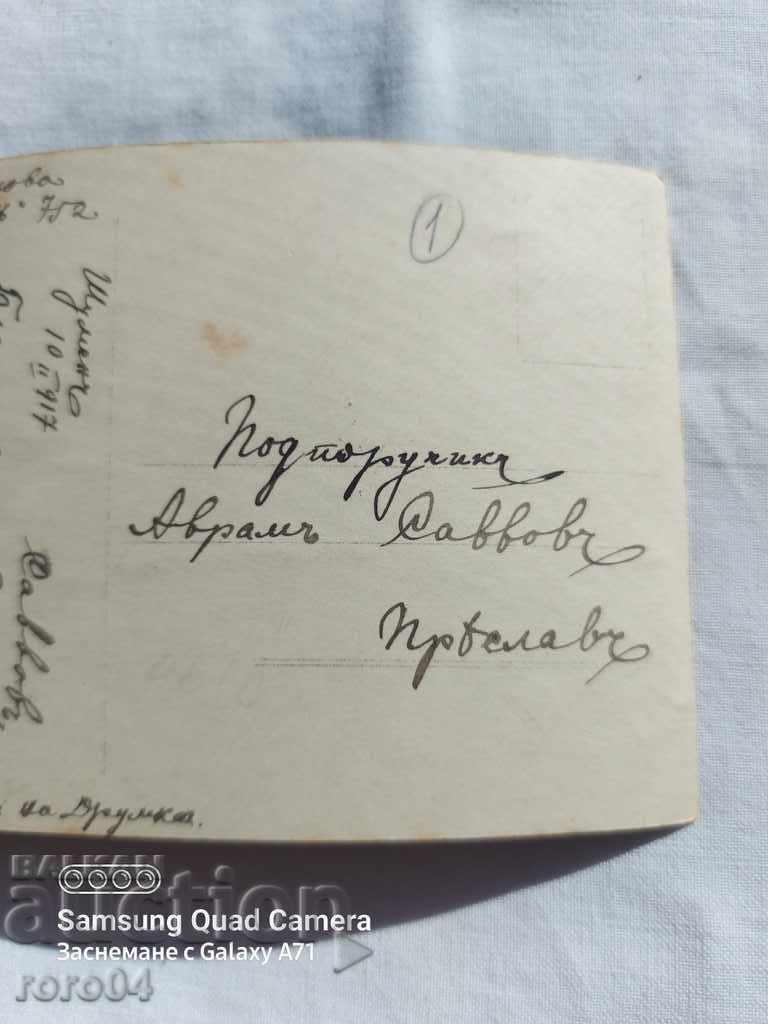 752
1
Шуменъ
10 II 917
Подпоручикъ
Аврамъ Саввовъ
Прѣславъ
Саввовъ
на Друмка.
BALKAN
auction
Samsung Quad Camera
Заснемане с Galaxy A71
roro04